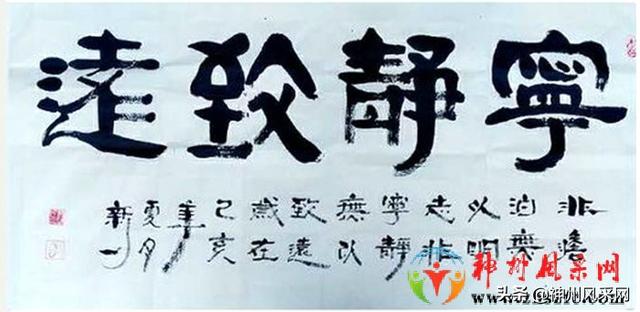 寧靜致遠
非澹
泊無
以明
志非
寧靜
無以
致遠
歲在
己亥
年
夏月
新一
神州风采网
头条 @神州风采网